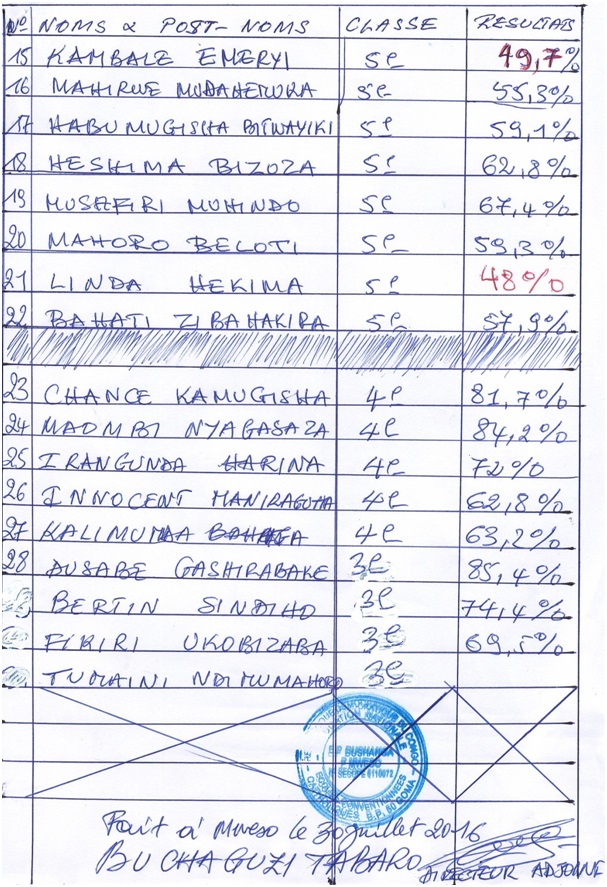 Nº NOMS & POST-NOMS CLASSE RESULTATS
15 KAMBALE EMERYI 5e 49,7%
16 MAHIRWE MUDAHERUKA 5e 55,3%
17 HABUMUGISHA BITWAYIKI 5e 59,1%
18 HESHIMA BIZOZA 5e 62,8%
19 MUSAFIRI MUHINDO 5e 67,4%
20 MAHORO BELOTI 5e 59,3%
21 LINDA HEKIMA 5e 48%
22 BAHATI ZIBAHAKIRA 5e 57,9%
23 CHANCE KAMUGISHA 4e 81,7%
24 MAOMBI NYAGASAZA 4e 84,2%
25 IRANGUNDA HARINA 4e 72%
26 INNOCENT MANIRAGUHA 4e 62,8%
27 KALIMUNAA 4e 63,2%
28 AUSABE GASHIRABAKE 3e 85,4%
BERTIN SINDIHO 3e 74,4%
FIKIRI UKOBIZABA 3e 69,5%
TUMAINI NDIMUMAHORO 3e
E.P BUSHANGA
P MWESO
N° SECOPE 6110072
CATHOLIQUES B.P. 50 GOMA
Fait à Mweso le 30 juillet 2016
BUCHAGUZI TABARO
DIRECTEUR ADJOINT